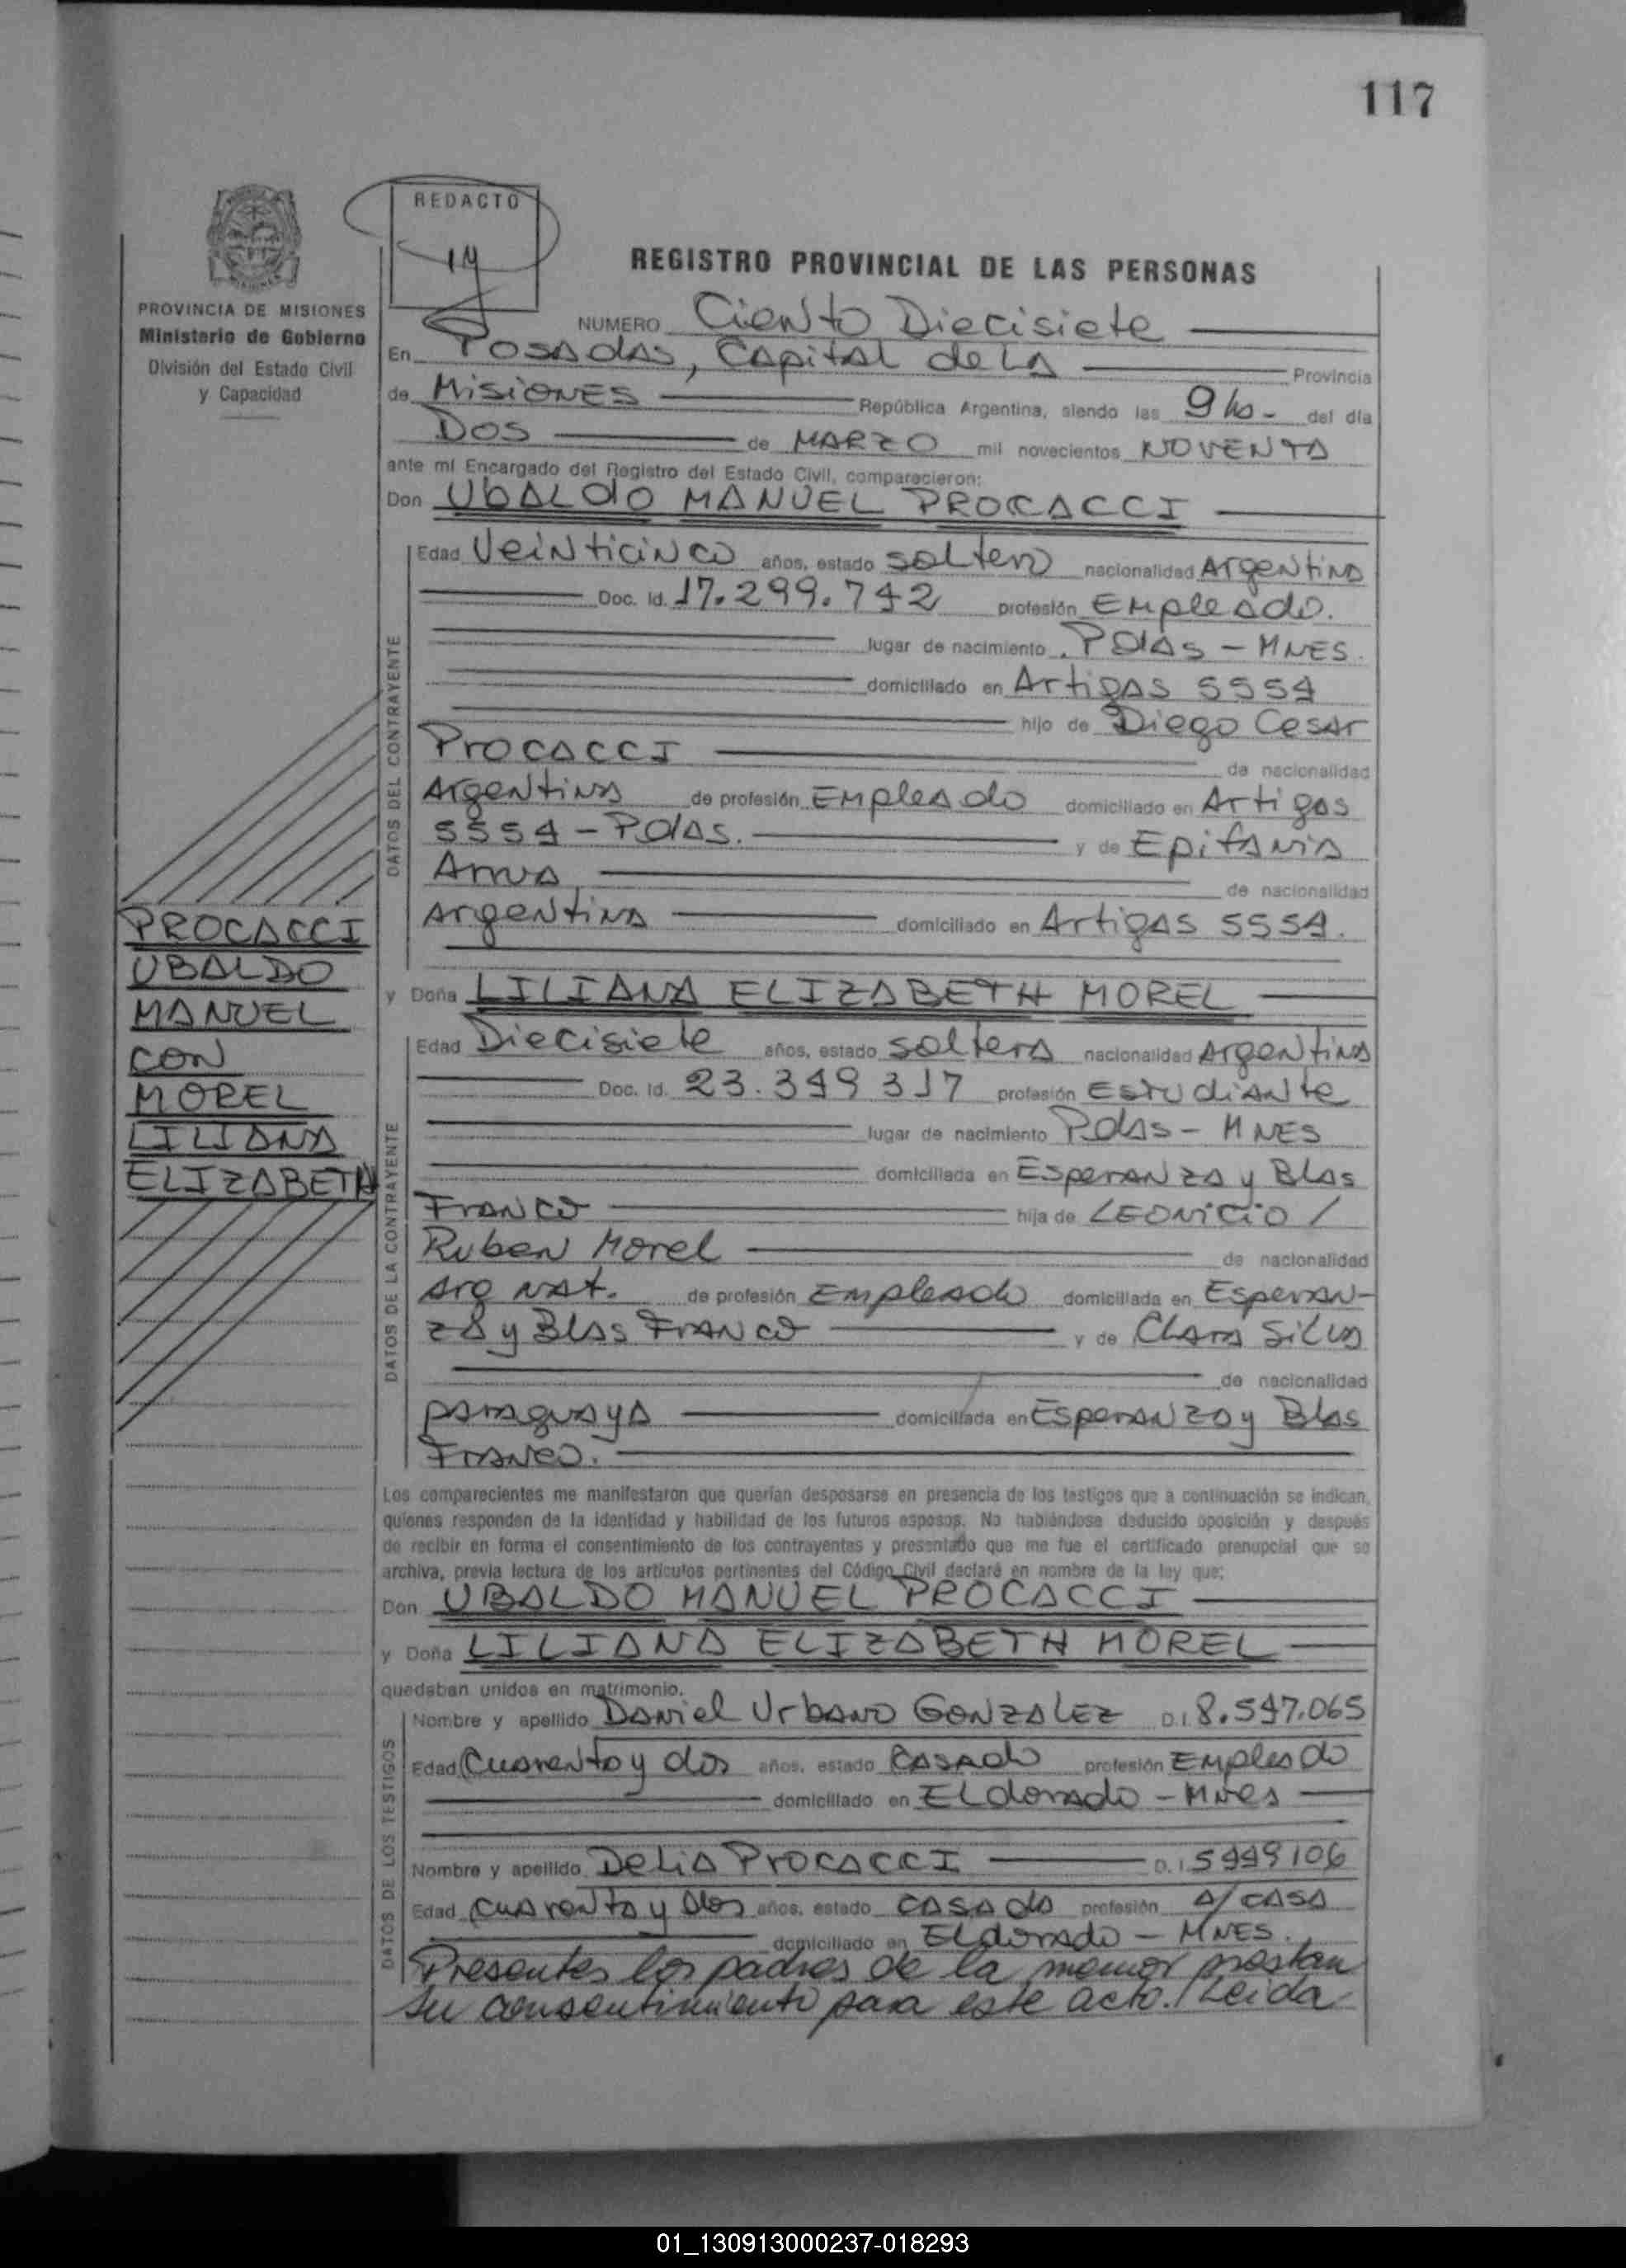 117
REDACTO
14
PROVINCIA DE MISIONES
Ministerio de Gobierno
División del Estado Civil
y Capacidad
REGISTRO PROVINCIAL DE LAS PERSONAS
NUMERO Ciento Diecisiete
En Posadas, Capital de la Provincia
de Misiones República Argentina, siendo las 9 hs- del día
Dos de MARZO mil novecientos NOVENTA
ante mí Encargado del Registro del Estado Civil, comparecieron:
Don Ubaldo MANUEL PROCACCI
DATOS DEL CONTRAYENTE
Edad Veinticinco años, estado soltero nacionalidad Argentina
Doc. Id. 17.299.742 profesión Empleado.
lugar de nacimiento Pdas - MNES.
domiciliado en Artigas 5554
hijo de Diego Cesar
Procacci de nacionalidad
Argentina de profesión Empleado domiciliado en Artigas
5554 - Pdas. y de Epifania
de nacionalidad
Argentina domiciliado en Artigas 5554.
PROCACCI
UBALDO
MANUEL
CON
MOREL
LILIANA
ELIZABETH
y Doña LILIANA ELIZABETH MOREL
DATOS DE LA CONTRAYENTE
Edad Diecisiete años, estado soltera nacionalidad Argentina
Doc. Id. 23.349 317 profesión Estudiante
lugar de nacimiento Pdas - MNES
domiciliada en Esperanza y Blas
Franco hija de LEONICIO /
Ruben Morel de nacionalidad
Arg Nat. de profesión Empleado domiciliada en Esperan-
za y Blas Franco y de Clara Silva
de nacionalidad
paraguaya domiciliada en Esperanza y Blas
Franco.
Los comparecientes me manifestaron que querían desposarse en presencia de los testigos que a continuación se indican,
quiénes responden de la identidad y habilidad de los futuros esposos. No habiéndose deducido oposición y después
de recibir en forma el consentimiento de los contrayentes y presentado que me fue el certificado prenupcial que se
archiva, previa lectura de los artículos pertinentes del Código Civil declaré en nombre de la ley que;
Don UBALDO MANUEL PROCACCI
y Doña LILIANA ELIZABETH MOREL
quedaban unidos en matrimonio.
DATOS DE LOS TESTIGOS
Nombre y apellido Daniel Urbano GONZALEZ D.I. 8.547.065
Edad Cuarenta y dos años, estado Casado profesión Empleado
domiciliado en Eldorado - Mnes
Nombre y apellido Delia PROCACCI D.I. 5999106
Edad Cuarenta y Dos años, estado casada profesión A/CASA
domiciliado en Eldorado - MNES.
Presentes los padres de la menor prestan
su consentimiento para este acto. Leida
01_130913000237-018293